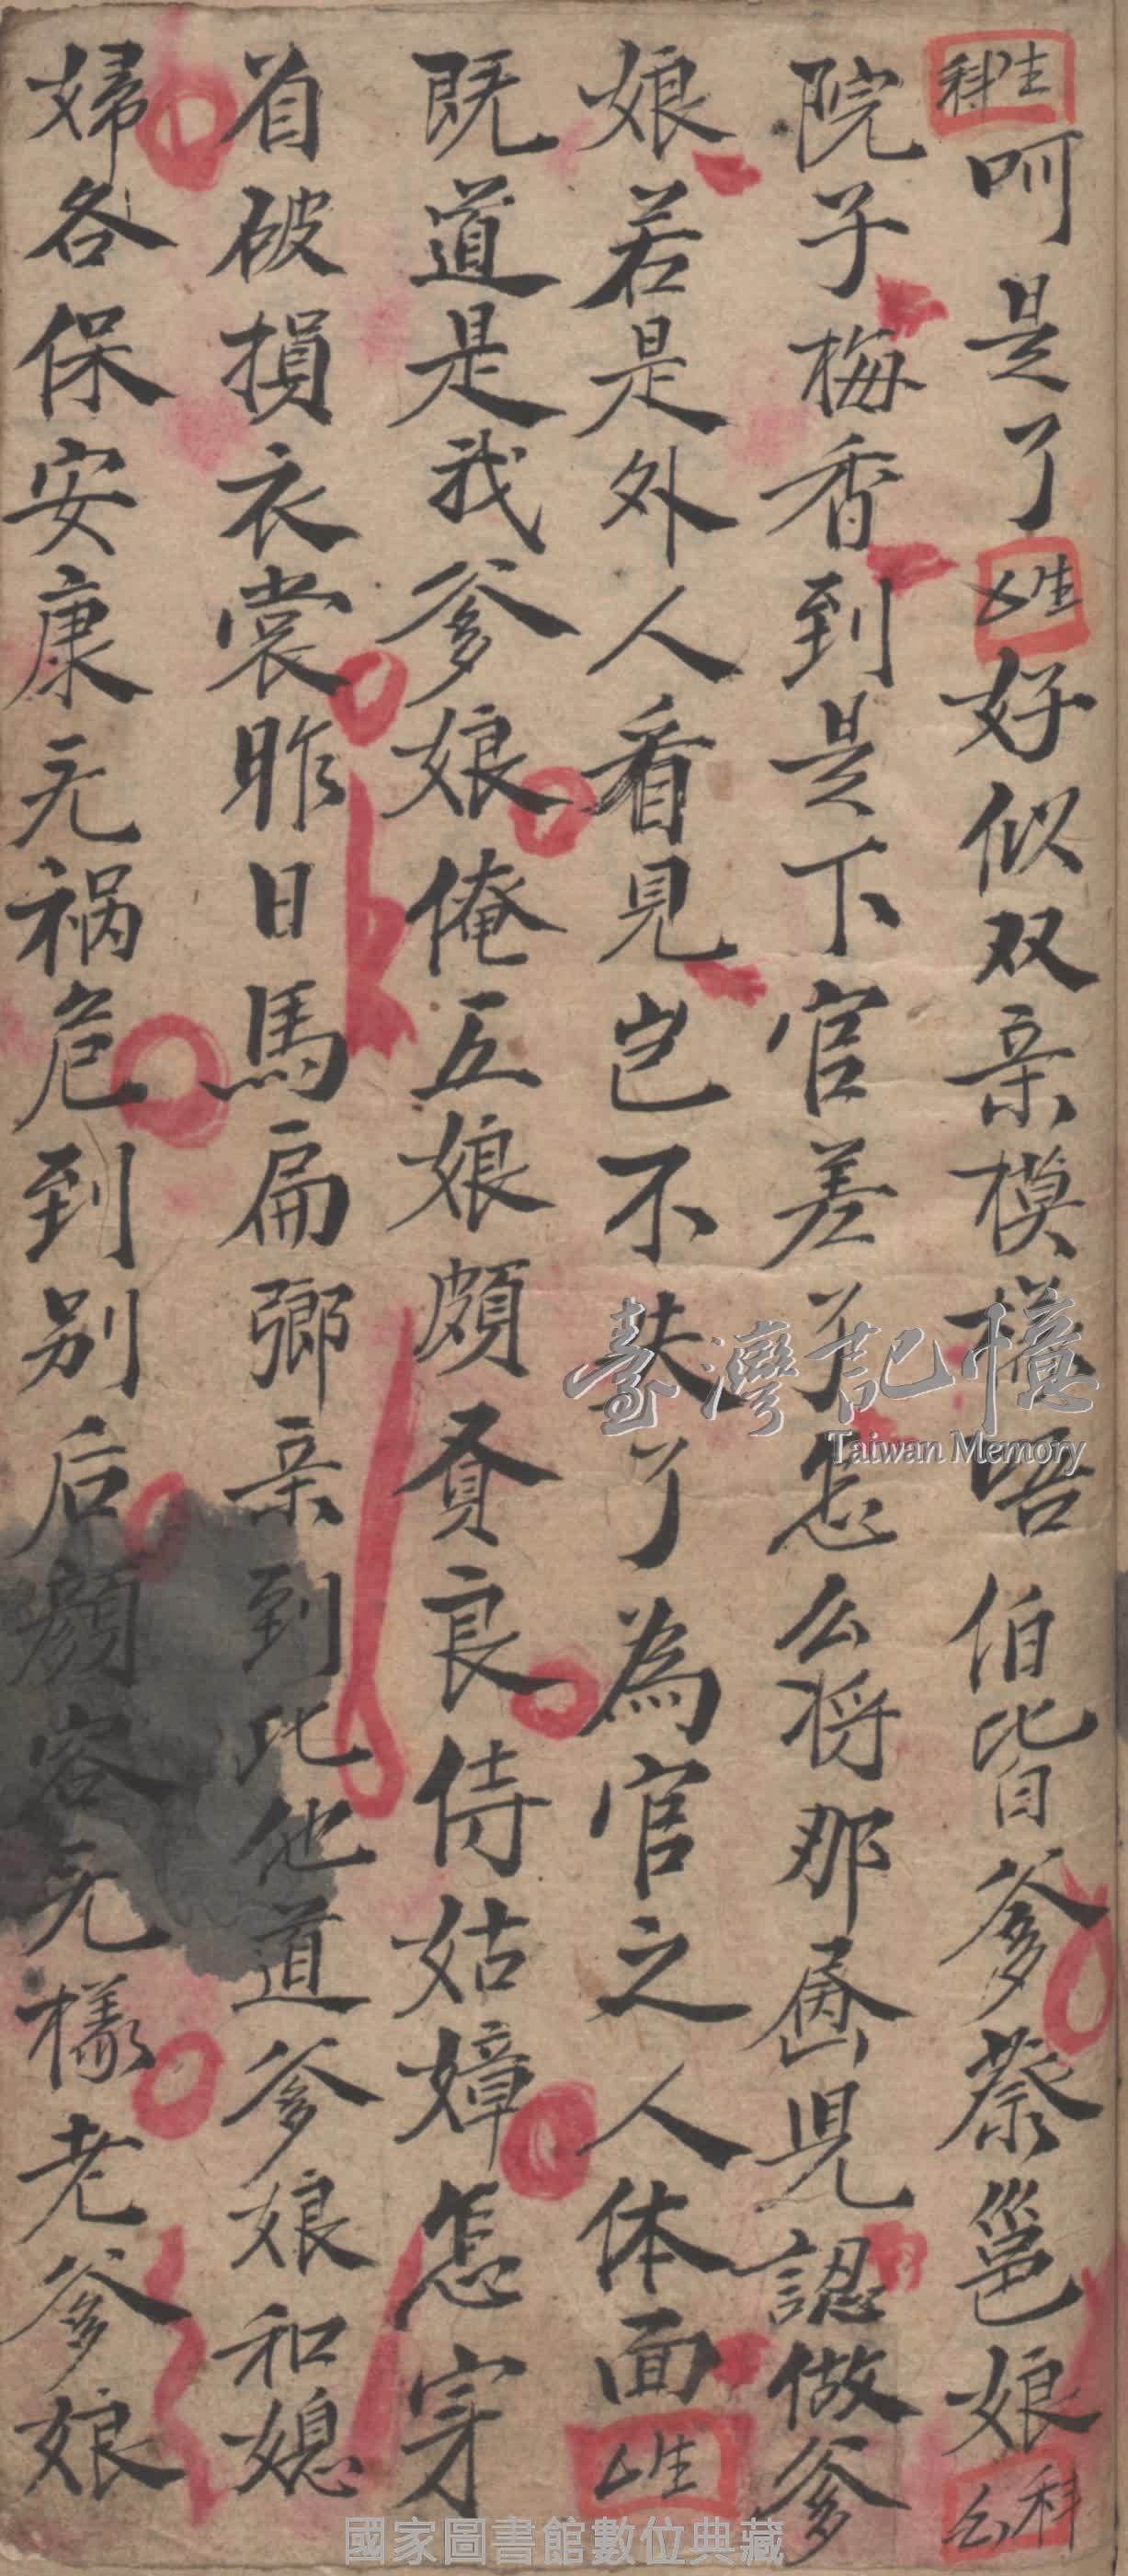 生科呵是了生好似双亲模樣 伯皆爹蔡邕娘科
院子梅香到是下官差了怎么将那 認做爹
娘若是外人看見岂不失了為官之人体面生
既道是我爹娘俺五娘頗賢良侍姑嫜怎穿
着破損衣裳昨日馬扁鄉亲到此他道爹娘和媳
婦各保安康无禍危到别后顔容无樣老爹娘
臺灣記憶
Taiwan Memory
國家圖書館數位典藏